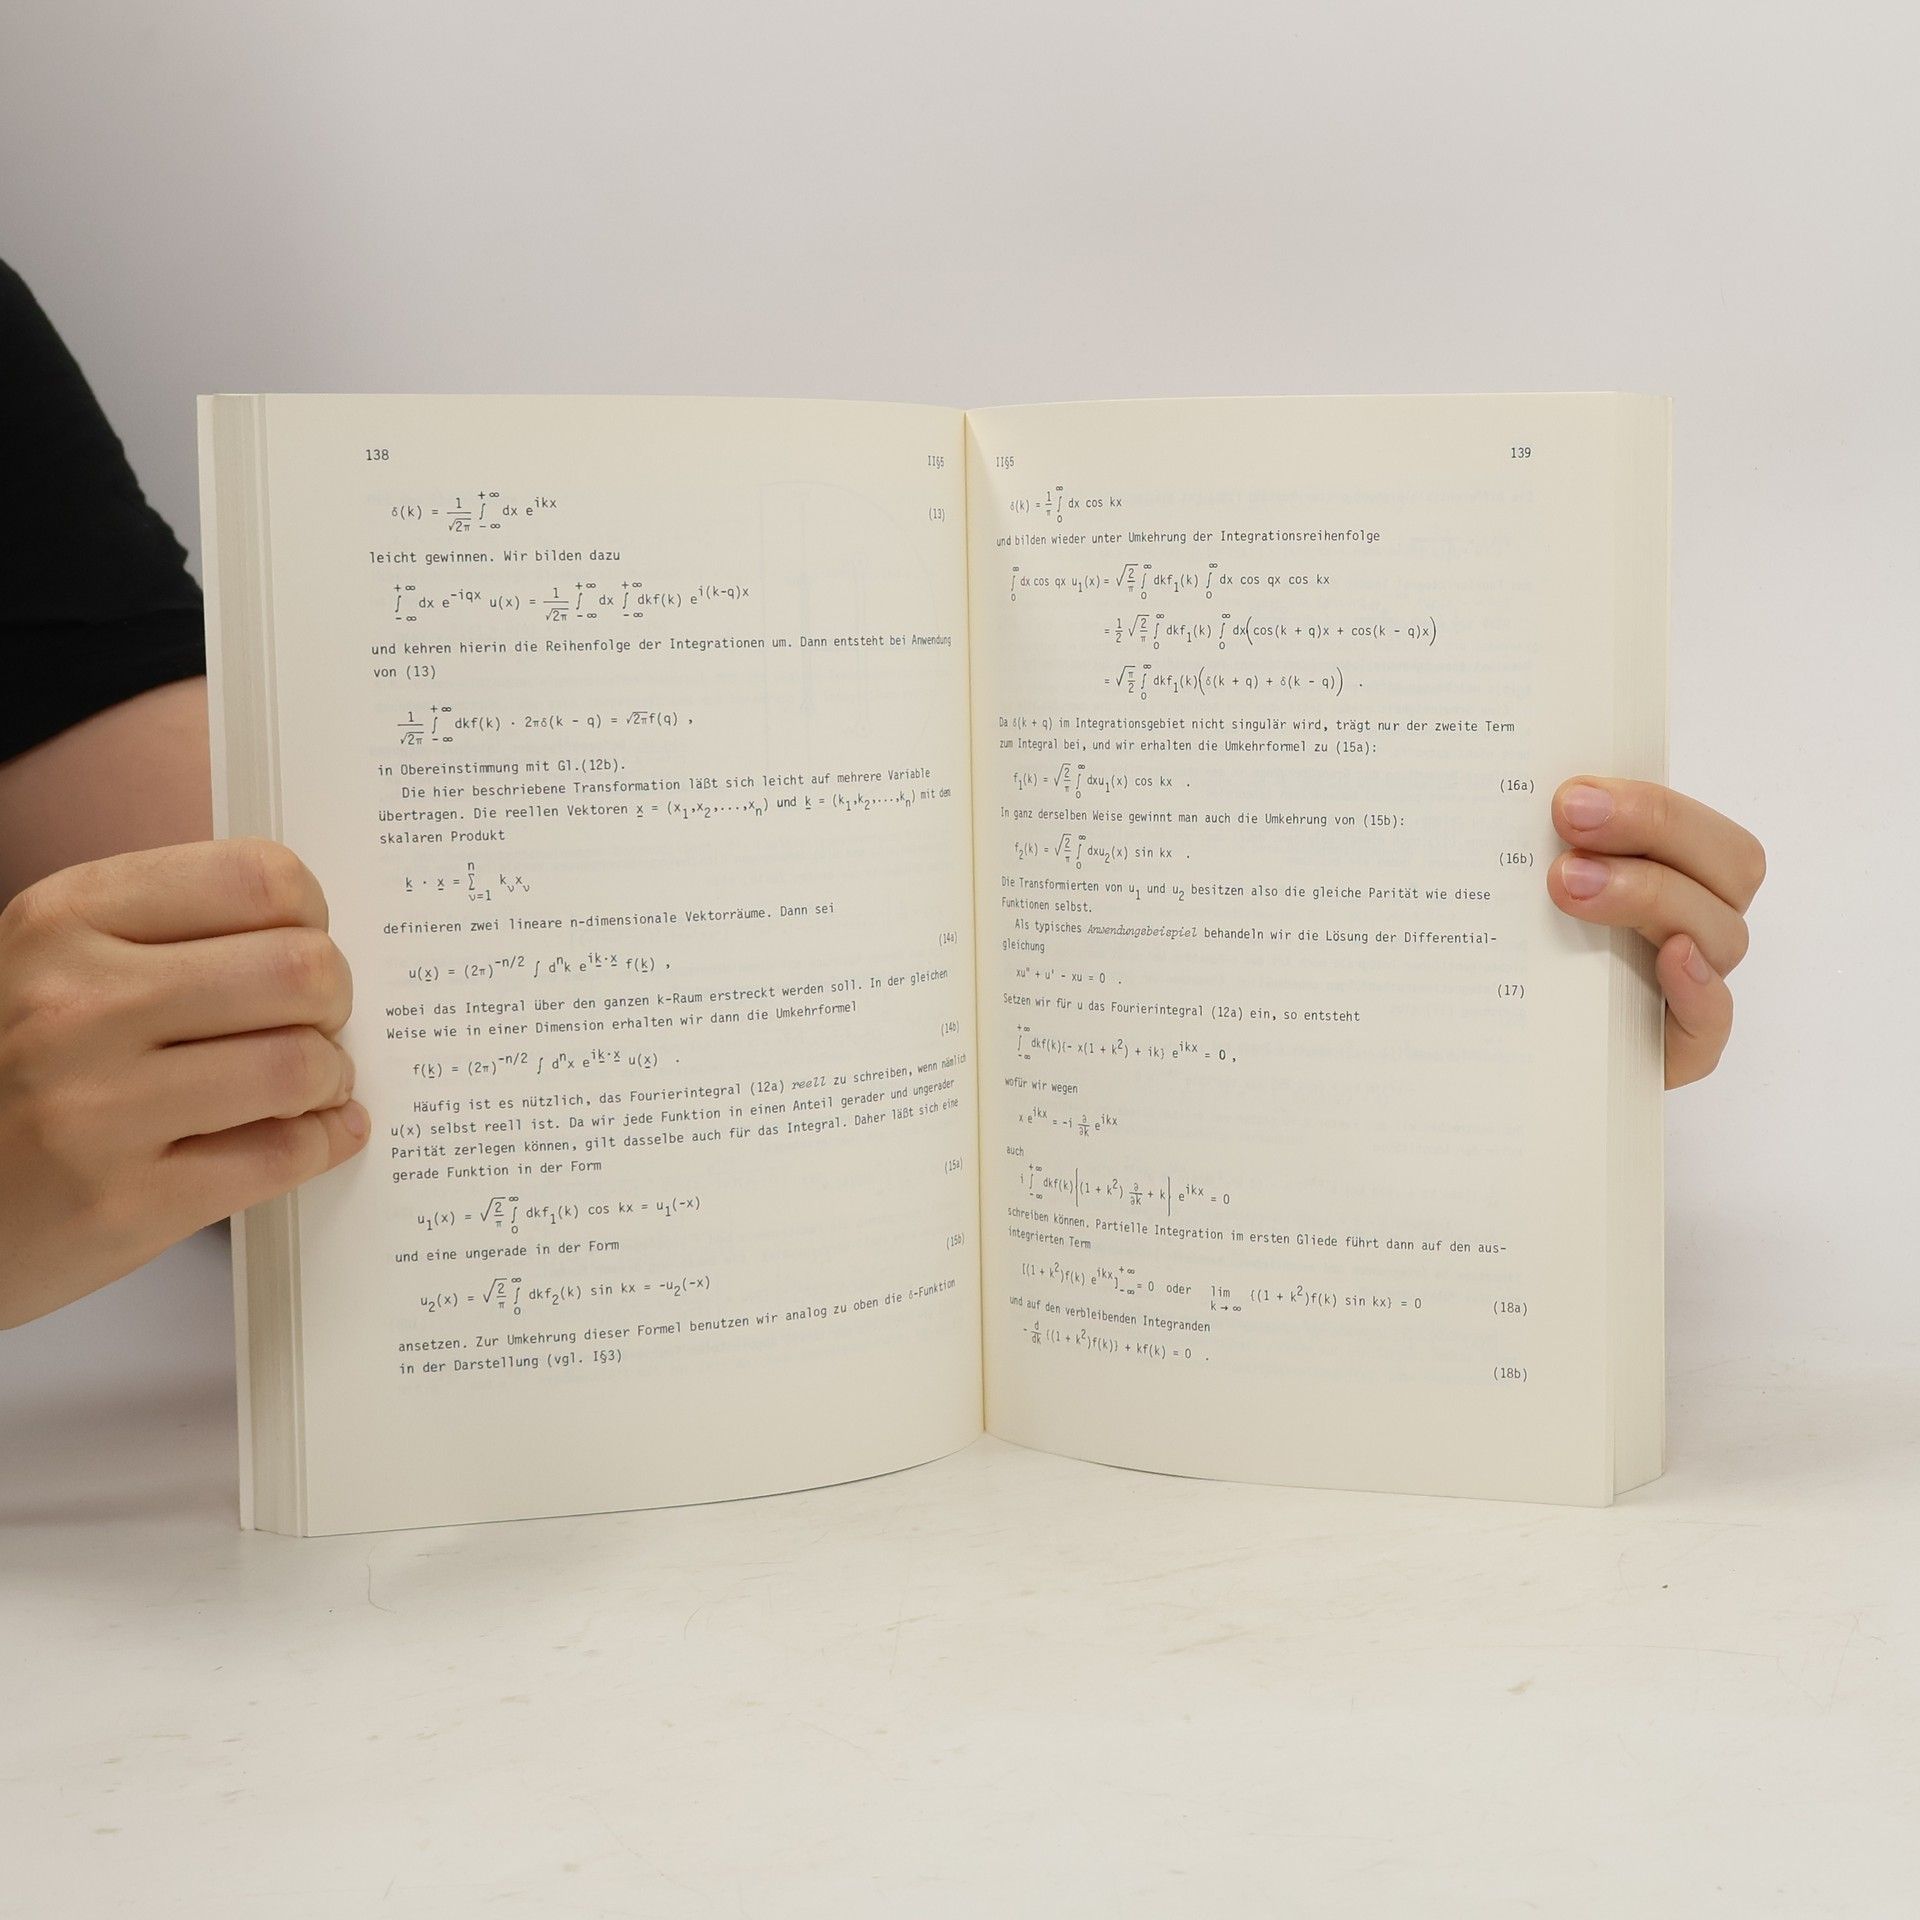 138
II§5
δ(k) = 1/√2π ∫_{-∞}^{+∞} dx e^{ikx} (13)
leicht gewinnen. Wir bilden dazu
∫_{-∞}^{+∞} dx e^{-iqx} u(x) = 1/√2π ∫_{-∞}^{+∞} dx ∫_{-∞}^{+∞} dkf(k) e^{i(k-q)x}
und kehren hierin die Reihenfolge der Integrationen um. Dann entsteht bei Anwendung
von (13)
1/√2π ∫_{-∞}^{+∞} dkf(k) · 2πδ(k - q) = √2πf(q) ,
in Obereinstimmung mit Gl.(12b).
Die hier beschriebene Transformation läßt sich leicht auf mehrere Variable
übertragen. Die reellen Vektoren x = (x₁,x₂,...,xₙ) und k = (k₁,k₂,...,kₙ) mit dem
skalaren Produkt
k · x = Σ_{ν=1}^{n} k_ν x_ν
definieren zwei lineare n-dimensionale Vektorräume. Dann sei
u(x) = (2π)^{-n/2} ∫ dⁿk e^{ik·x} f(k) , (14a)
wobei das Integral über den ganzen k-Raum erstreckt werden soll. In der gleichen
Weise wie in einer Dimension erhalten wir dann die Umkehrformel
f(k) = (2π)^{-n/2} ∫ dⁿx e^{ik·x} u(x) . (14b)
Häufig ist es nützlich, das Fourierintegral (12a) reell zu schreiben, wenn nämlich
u(x) selbst reell ist. Da wir jede Funktion in einen Anteil gerader und ungerader
Parität zerlegen können, gilt dasselbe auch für das Integral. Daher läßt sich eine
gerade Funktion in der Form
u₁(x) = √(2/π) ∫_0^∞ dkf₁(k) cos kx = u₁(-x) (15a)
und eine ungerade in der Form
u₂(x) = √(2/π) ∫_0^∞ dkf₂(k) sin kx = -u₂(-x) (15b)
ansetzen. Zur Umkehrung dieser Formel benutzen wir analog zu oben die δ-Funktion
in der Darstellung (vgl. I§3)
II§5
139
δ(k) = 1/π ∫_0^∞ dx cos kx
und bilden wieder unter Umkehrung der Integrationsreihenfolge
∫_0^∞ dx cos qx u₁(x) = √(2/π) ∫_0^∞ dkf₁(k) ∫_0^∞ dx cos qx cos kx
= 1/2 √(2/π) ∫_0^∞ dkf₁(k) ∫_0^∞ dx(cos(k + q)x + cos(k - q)x)
= √(π/2) ∫_0^∞ dkf₁(k)(δ(k + q) + δ(k - q)) .
Da δ(k + q) im Integrationsgebiet nicht singulär wird, trägt nur der zweite Term
zum Integral bei, und wir erhalten die Umkehrformel zu (15a):
f₁(k) = √(2/π) ∫_0^∞ dxu₁(x) cos kx . (16a)
In ganz derselben Weise gewinnt man auch die Umkehrung von (15b):
f₂(k) = √(2/π) ∫_0^∞ dxu₂(x) sin kx . (16b)
Die Transformierten von u₁ und u₂ besitzen also die gleiche Parität wie diese
Funktionen selbst.
Als typisches Anwendungsbeispiel behandeln wir die Lösung der Differential-
gleichung
xu" + u' - xu = 0 . (17)
Setzen wir für u das Fourierintegral (12a) ein, so entsteht
∫_{-∞}^{+∞} dkf(k){- x(1 + k²) + ik} e^{ikx} = 0 ,
wofür wir wegen
x e^{ikx} = -i ∂/∂k e^{ikx}
auch
i ∫_{-∞}^{+∞} dkf(k){(1 + k²) ∂/∂k + k} e^{ikx} = 0
schreiben können. Partielle Integration im ersten Gliede führt dann auf den aus-
integrierten Term
[(1 + k²)f(k) e^{ikx}]_{-∞}^{+∞} = 0 oder lim_{k→∞} {(1 + k²)f(k) sin kx} = 0 (18a)
und auf den verbleibenden Integranden
- d/dk {(1 + k²)f(k)} + kf(k) = 0 . (18b)